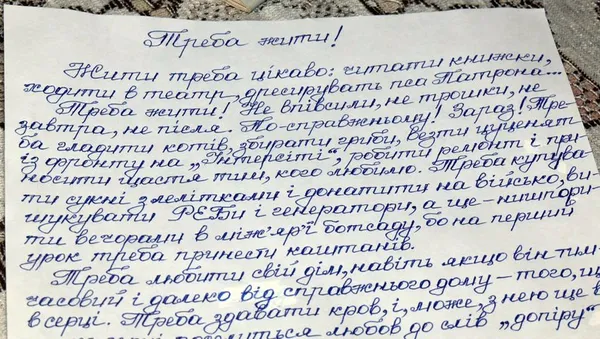 Треба жити!
Жити треба цікаво: читати книжки,
ходити в театр, дресирувать пса Патрона...
Треба жити! Не впівсили, не трошки, не
завтра, не після. По-справжньому! Зараз! Тре-
ба гладити котів, збирати гриби, везти цуценят
із фронту на „Інтерсіті“, робити ремонт і при-
носити щастя тим, кого любимо. Треба купува-
ти сукні з лелітками і донатити на військо, ви-
шукувати РЕБи і генератори, а ще – нишпори-
ти вечорами в між'ярї ботсаду, бо на перший
урок треба принести каштанів.
Треба любити свій дім, навіть якщо він тим-
часовий і далеко від справжнього дому – того, що
в серці. Треба здавати кров, і, може, з нею ще в
любов до слів „допіру“